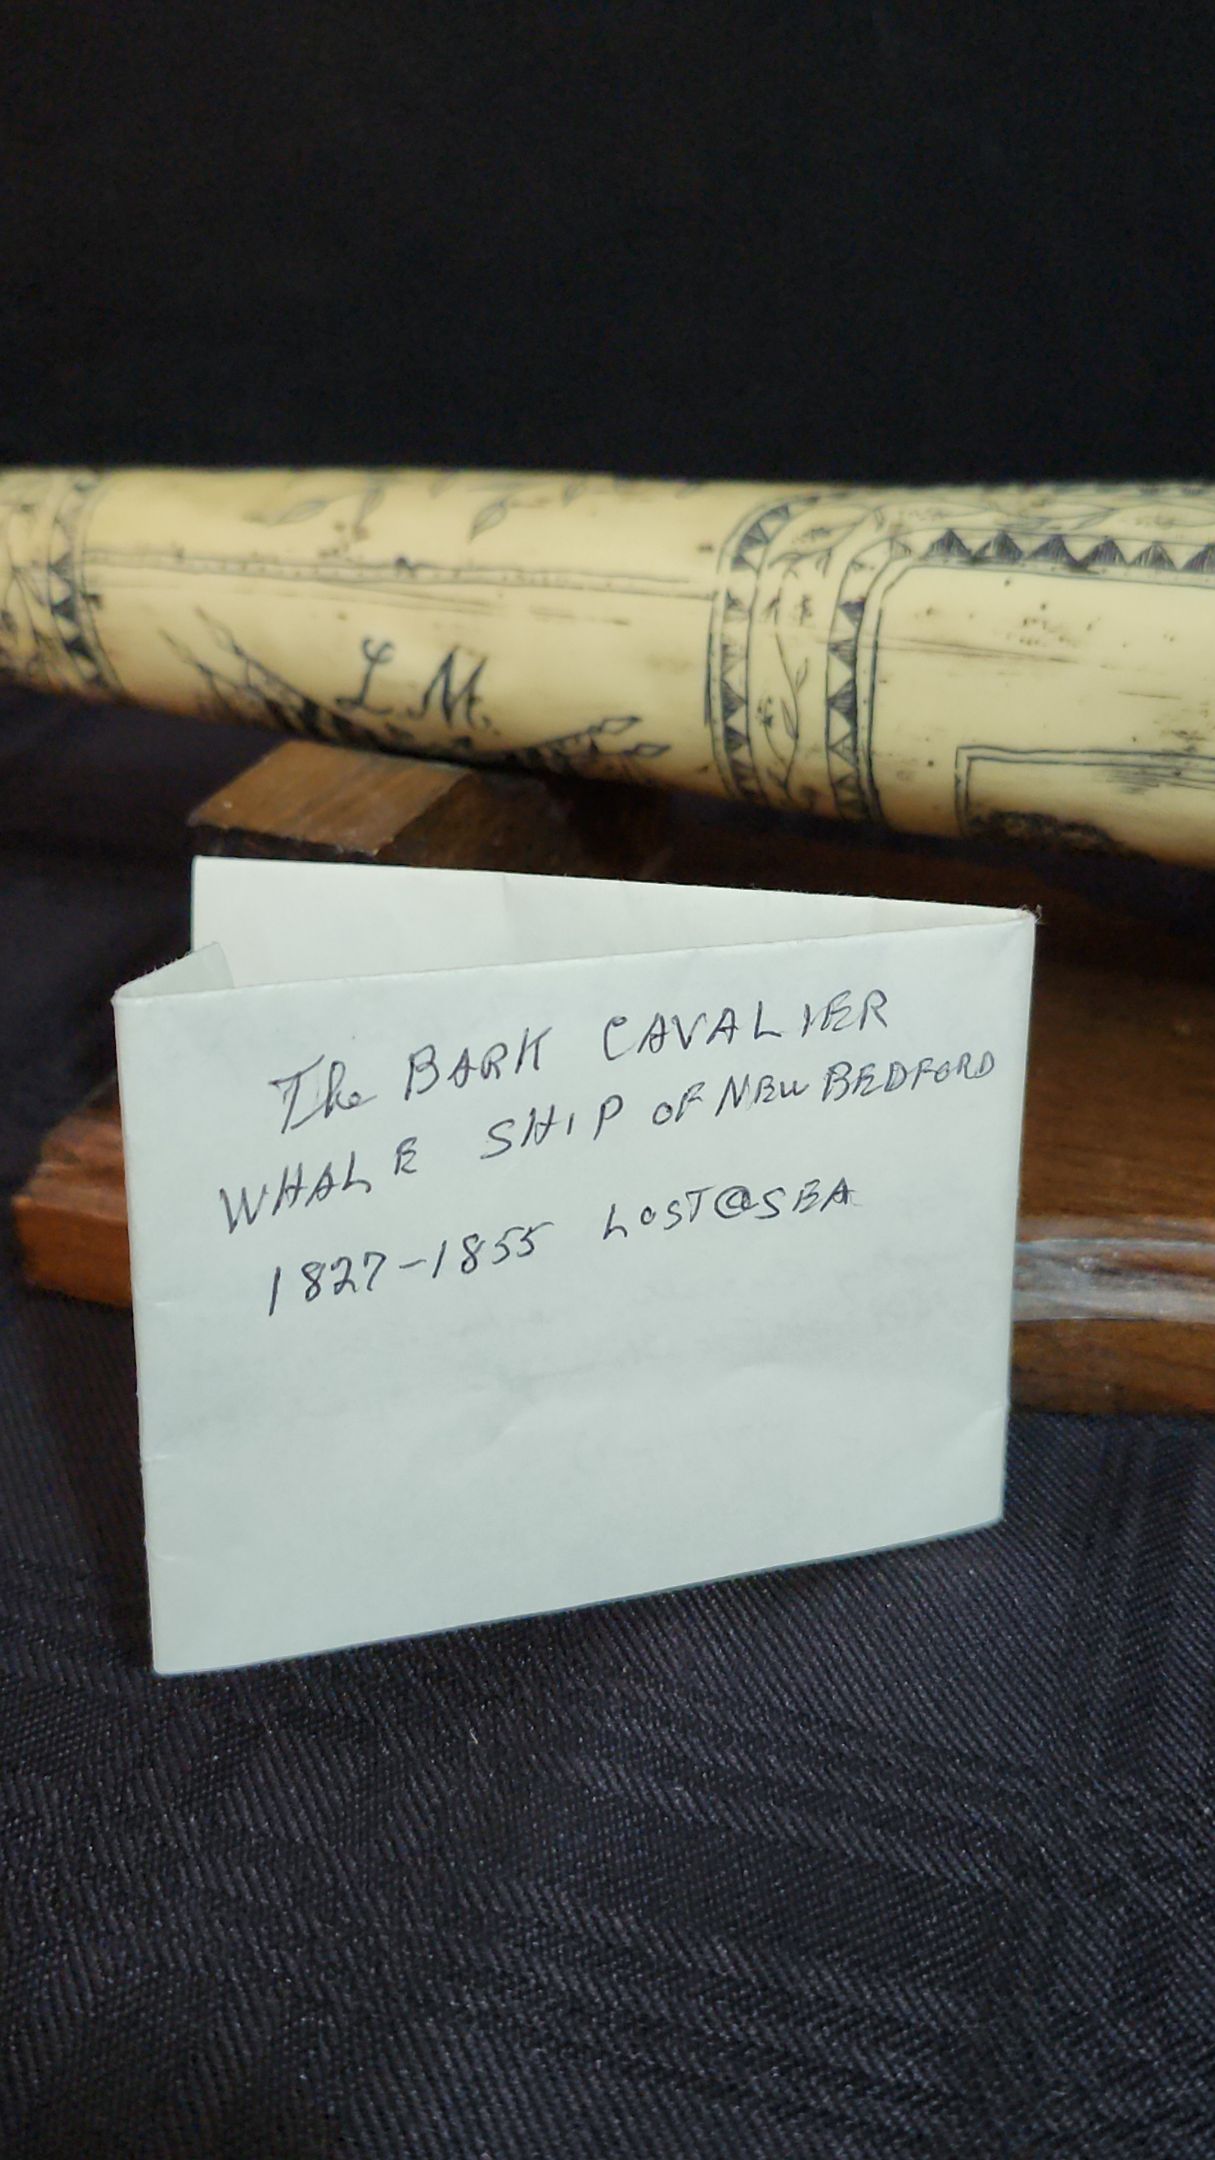 L.M.
The BARK CAVALIER
WHALE SHIP OF NEW BEDFORD
1827-1855 LOST@SEA